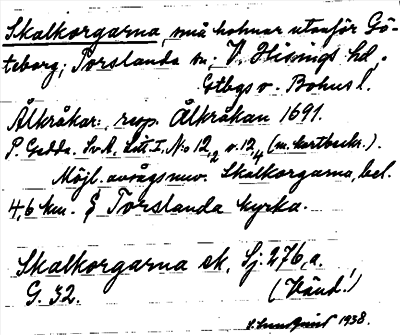 Skalkorgarna, små holmar utanför Gö-
teborg; Torslanda sn; V. Hisings hd.
Gtbgs o. Bohus l.
Ålkråkar:, resp. Ålkråkan 1691.
P. Gedda. SvA, Litt. I, N:o 12,2 o. 12,4 (m. kartbeskr.).
Möjl. avsågs nuv. Skalkorgarna, bel.
4,6 km. S Torslanda kyrka.
Skalkorgarna ek. Sj. 276, a.
G. 32. (Vänd!)
1938.